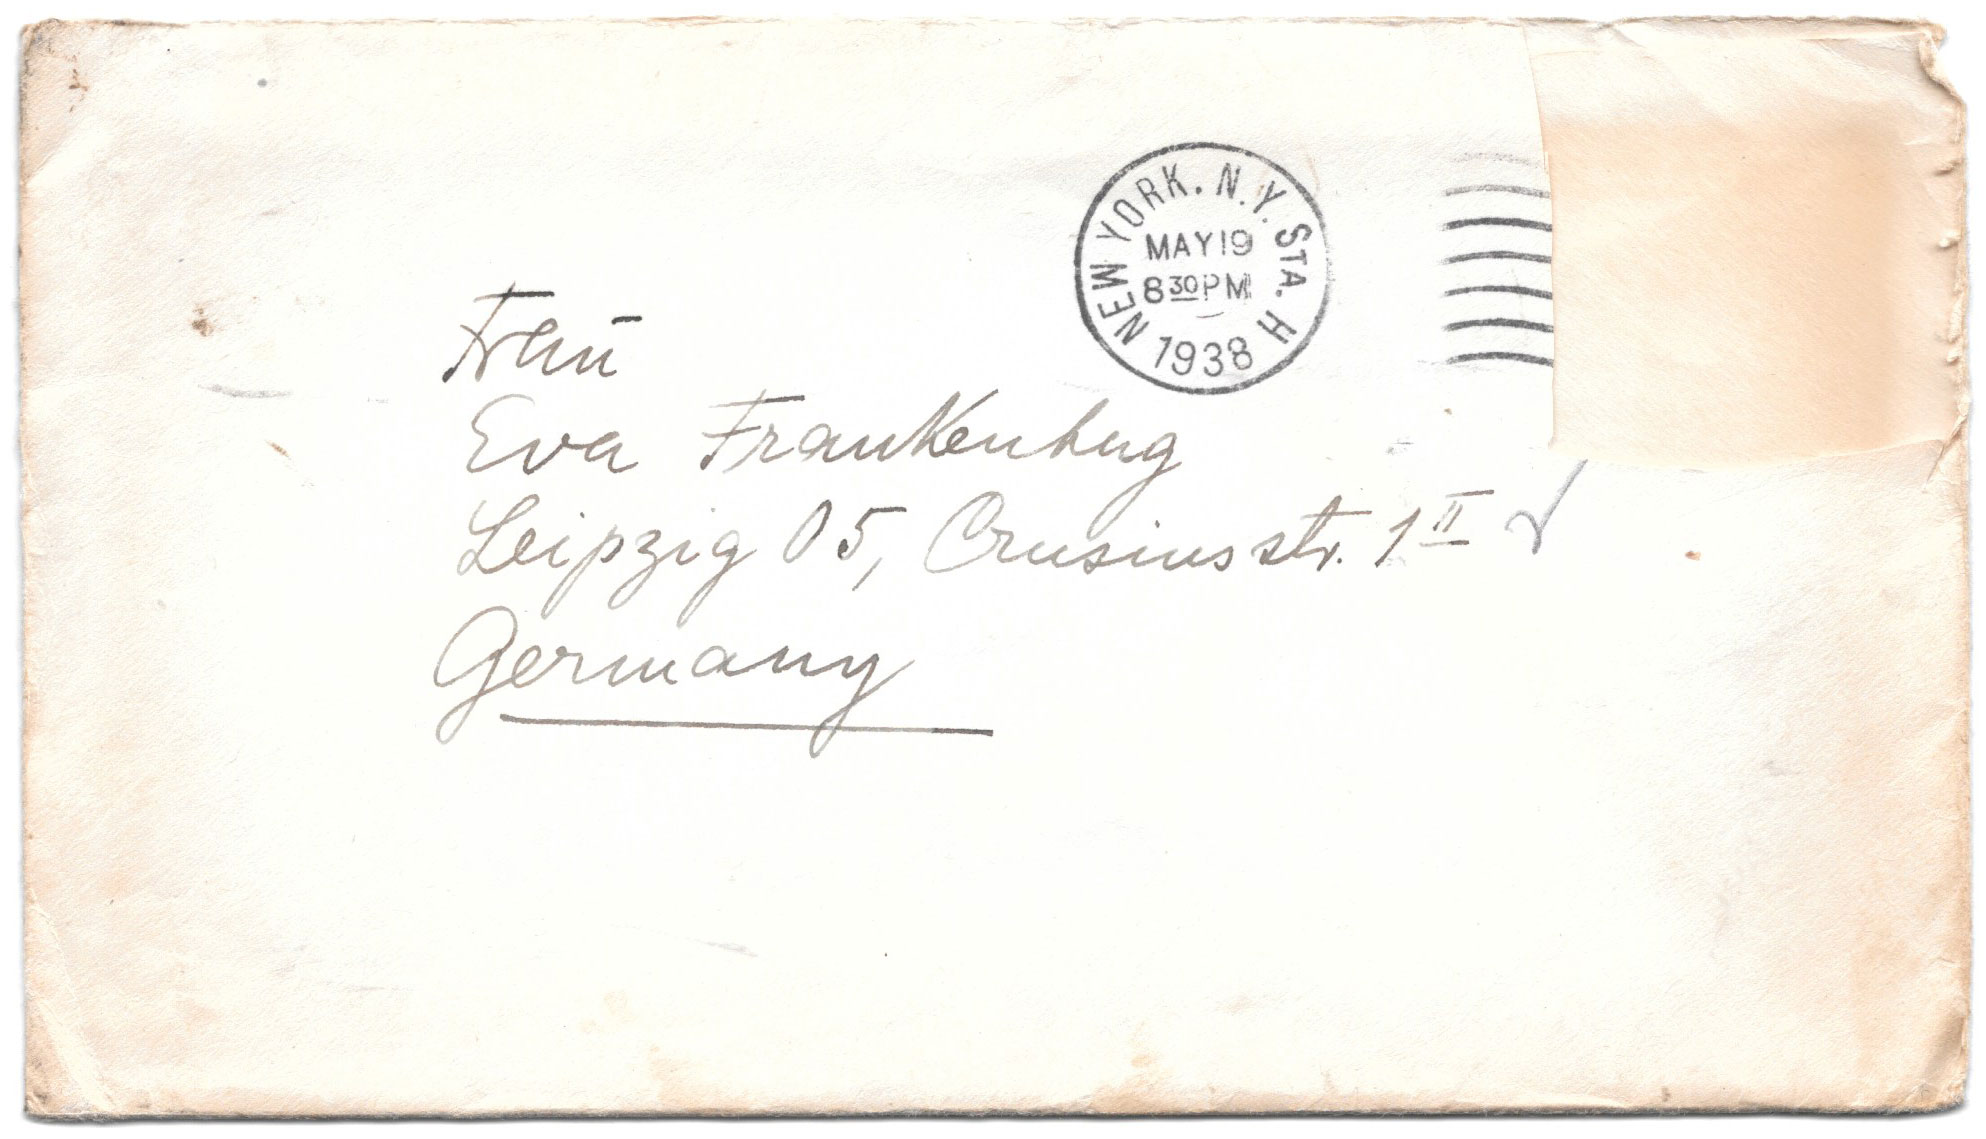 NEW YORK. N.Y. STA. H
MAY 19
8 30 PM
1938
Frau
Eva Frankenhug
Leipzig O5, Crusiusstr. 1 II
Germany